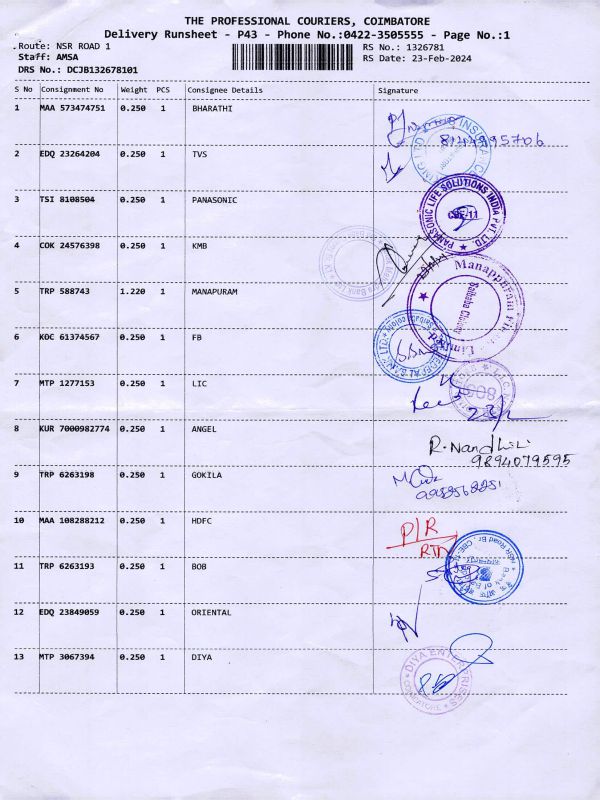 THE PROFESSIONAL COURIERS, COIMBATORE
Delivery Runsheet - P43 - Phone No.:0422-3505555 - Page No.:1
Route: NSR ROAD 1 RS No.: 1326781
Staff: AMSA RS Date: 23-Feb-2024
DRS No.: DCJB132678101
S No Consignment No Weight PCS Consignee Details Signature
1 MAA 573474751 0.250 1 BHARATHI
2 EDQ 23264204 0.250 1 TVS
3 TSI 8108504 0.250 1 PANASONIC
PANASONIC LIFE SOLUTIONS INDIA PVT. LTD. CBE-11
4 COK 24576398 0.250 1 KMB
5 TRP 588743 1.220 1 MANAPURAM
Manappuram Saibaba Colony
6 KOC 61374567 0.250 1 FB
7 MTP 1277153 0.250 1 LIC
8 KUR 7000982774 0.250 1 ANGEL
R. Nandhini
9894079595
9 TRP 6263198 0.250 1 GOKILA
10 MAA 108288212 0.250 1 HDFC
P/R
RTN
11 TRP 6263193 0.250 1 BOB
NSR Road Br. CBE
12 EDQ 23849059 0.250 1 ORIENTAL
13 MTP 3067394 0.250 1 DIYA
DIYA ENTERPRISES COIMBATORE